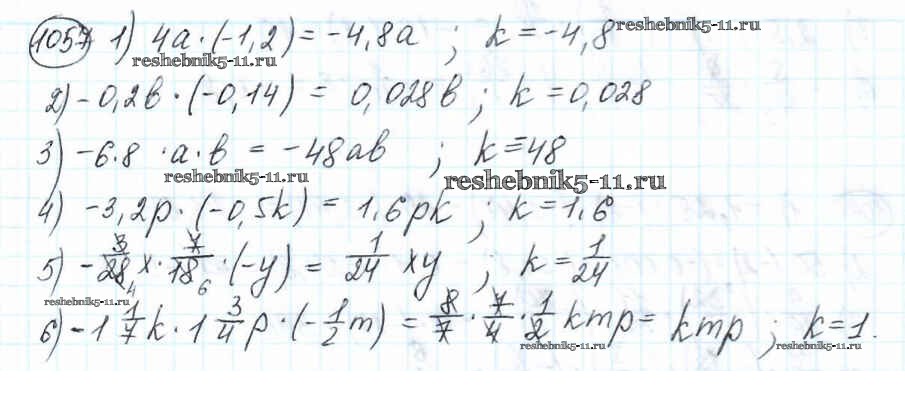 1057 1) 4a·(-1,2) = -4,8a ; k = -4,8 reshebnik5-11.ru
reshebnik5-11.ru
2) -0,2в · (-0,14) = 0,028в ; k = 0,028
3) -6·8 ·a·в = -48aв ; k = -48
reshebnik5-11.ru reshebnik5-11.ru
4) -3,2p · (-0,5k) = 1,6pk ; k = 1,6
5) -3/28 x · 7/18 · (-y) = 1/24 xy ; k = 1/24
4 6
reshebnik5-11.ru
6) -1 1/7 k · 1 3/4 p · (-1/2 m) = 8/7 · 7/4 · 1/2 kmp = kmp ; k = 1.
reshebnik5-11.ru reshebnik5-11.ru